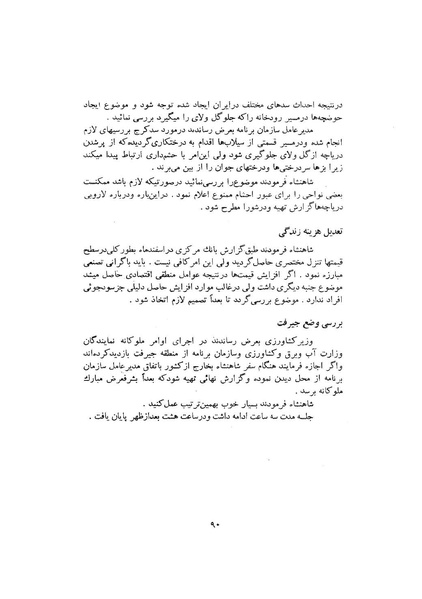 درنتیجه احداث سدهای مختلف درایران ایجاد شده توجه شود و موضوع ایجاد
حوضچه‌ها درمسیر رودخانه راکه جلوگل ولای را میگیرد بررسی نمائید .
مدیرعامل سازمان برنامه بعرض رساندند درمورد سدکرج بررسیهای لازم
انجام شده ودرمسیر قسمتی از سیلاب‌ها اقدام به درختکاری‌گردیده‌که از پرشدن
دریاچه ازگل ولای جلوگیری شود ولی این‌امر با حشم‌داری ارتباط پیدا میکند
زیرا بزها سردرختی‌ها ودرختهای جوان را از بین می‌برند .
شاهنشاه فرمودند موضوع‌را بررسی‌نمائید درصورتیکه لازم باشد ممکنست
بعضی نواحی را برای عبور احشام ممنوع اعلام نمود . دراین‌باره ودرباره لاروبی
دریاچه‌هاگزارش تهیه ودرشورا مطرح شود .
تعدیل هزینه زندگی
شاهنشاه فرمودند طبق‌گزارش بانك مرکزی دراسفندماه بطورکلی‌درسطح
قیمتها تنزل مختصری حاصل‌گردید ولی این امرکافی نیست . باید باگرانی تصنعی
مبارزه نمود . اگر افزایش قیمت‌ها درنتیجه عوامل منطقی اقتصادی حاصل میشد
موضوع جنبه دیگری داشت ولی درغالب موارد افزایش حاصل دلیلی جزسودجوئی
افراد ندارد . موضوع بررسی‌گردد تا بعداً تصمیم لازم اتخاذ شود .
بررسی وضع جیرفت
وزیرکشاورزی بعرض رساندند در اجرای اوامر ملوکانه نمایندگان
وزارت آب وبرق وکشاورزی وسازمان برنامه از منطقه جیرفت بازدیدکرده‌اند
واگر اجازه فرمایند هنگام سفر شاهنشاه بخارج ازکشور باتفاق مدیرعامل سازمان
برنامه از محل دیدن نموده وگزارش نهائی تهیه شودکه بعداً بشرفعرض مبارك
ملوکانه برسد .
شاهنشاه فرمودند بسیار خوب بهمین‌ترتیب عمل‌کنید .
جلسه مدت سه ساعت ادامه داشت ودرساعت هشت بعدازظهر پایان یافت .
۹۰